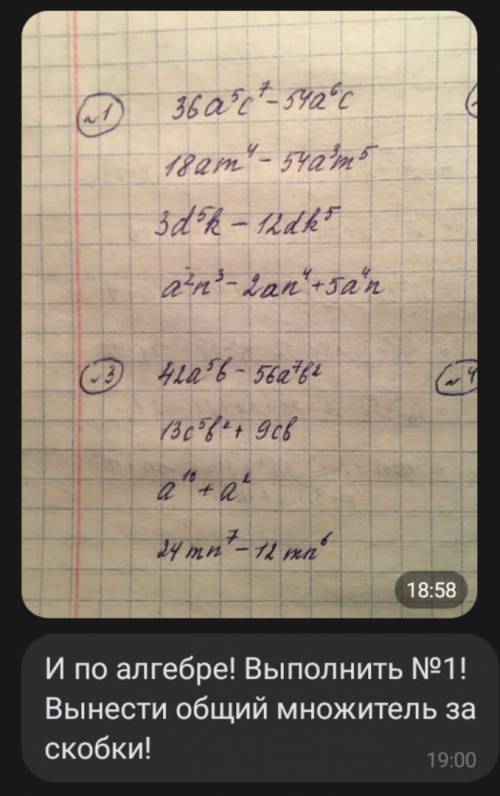 №1
36a⁵c⁷ - 54a⁶c
18am⁴ - 54a³m⁵
3d⁵k - 12dk⁵
a²n³ - 2an⁴ + 5a⁴n
№3
42a⁵b - 56a⁷b²
13c⁵b² + 9cb
a¹⁰ + a²
24mn⁷ - 12mn⁶
№4
18:58
И по алгебре! Выполнить №1!
Вынести общий множитель за
скобки!
19:00